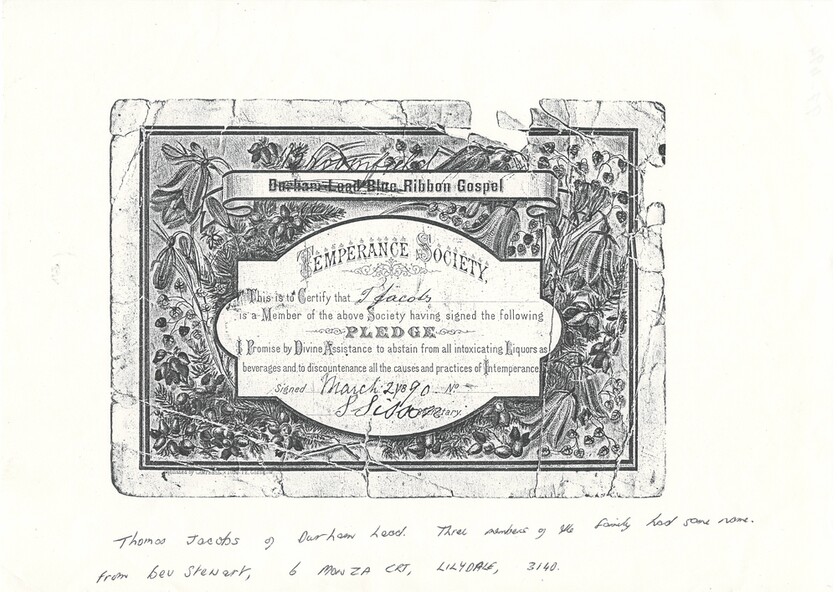 Durham Lead Blue Ribbon Gospel
TEMPERANCE SOCIETY.
This is to Certify that T Jacobs
is a Member of the above Society having signed the following
PLEDGE
I Promise by Divine Assistance to abstain from all intoxicating Liquors as
beverages and to discountenance all the causes and practices of Intemperance
Signed March 2 1890 No
S Sisson Secretary.
Thomas Jacobs of Durham Lead. Three members of the family had same name.
from Bev Stewart, 6 MONZA CRT, LILYDALE, 3140.